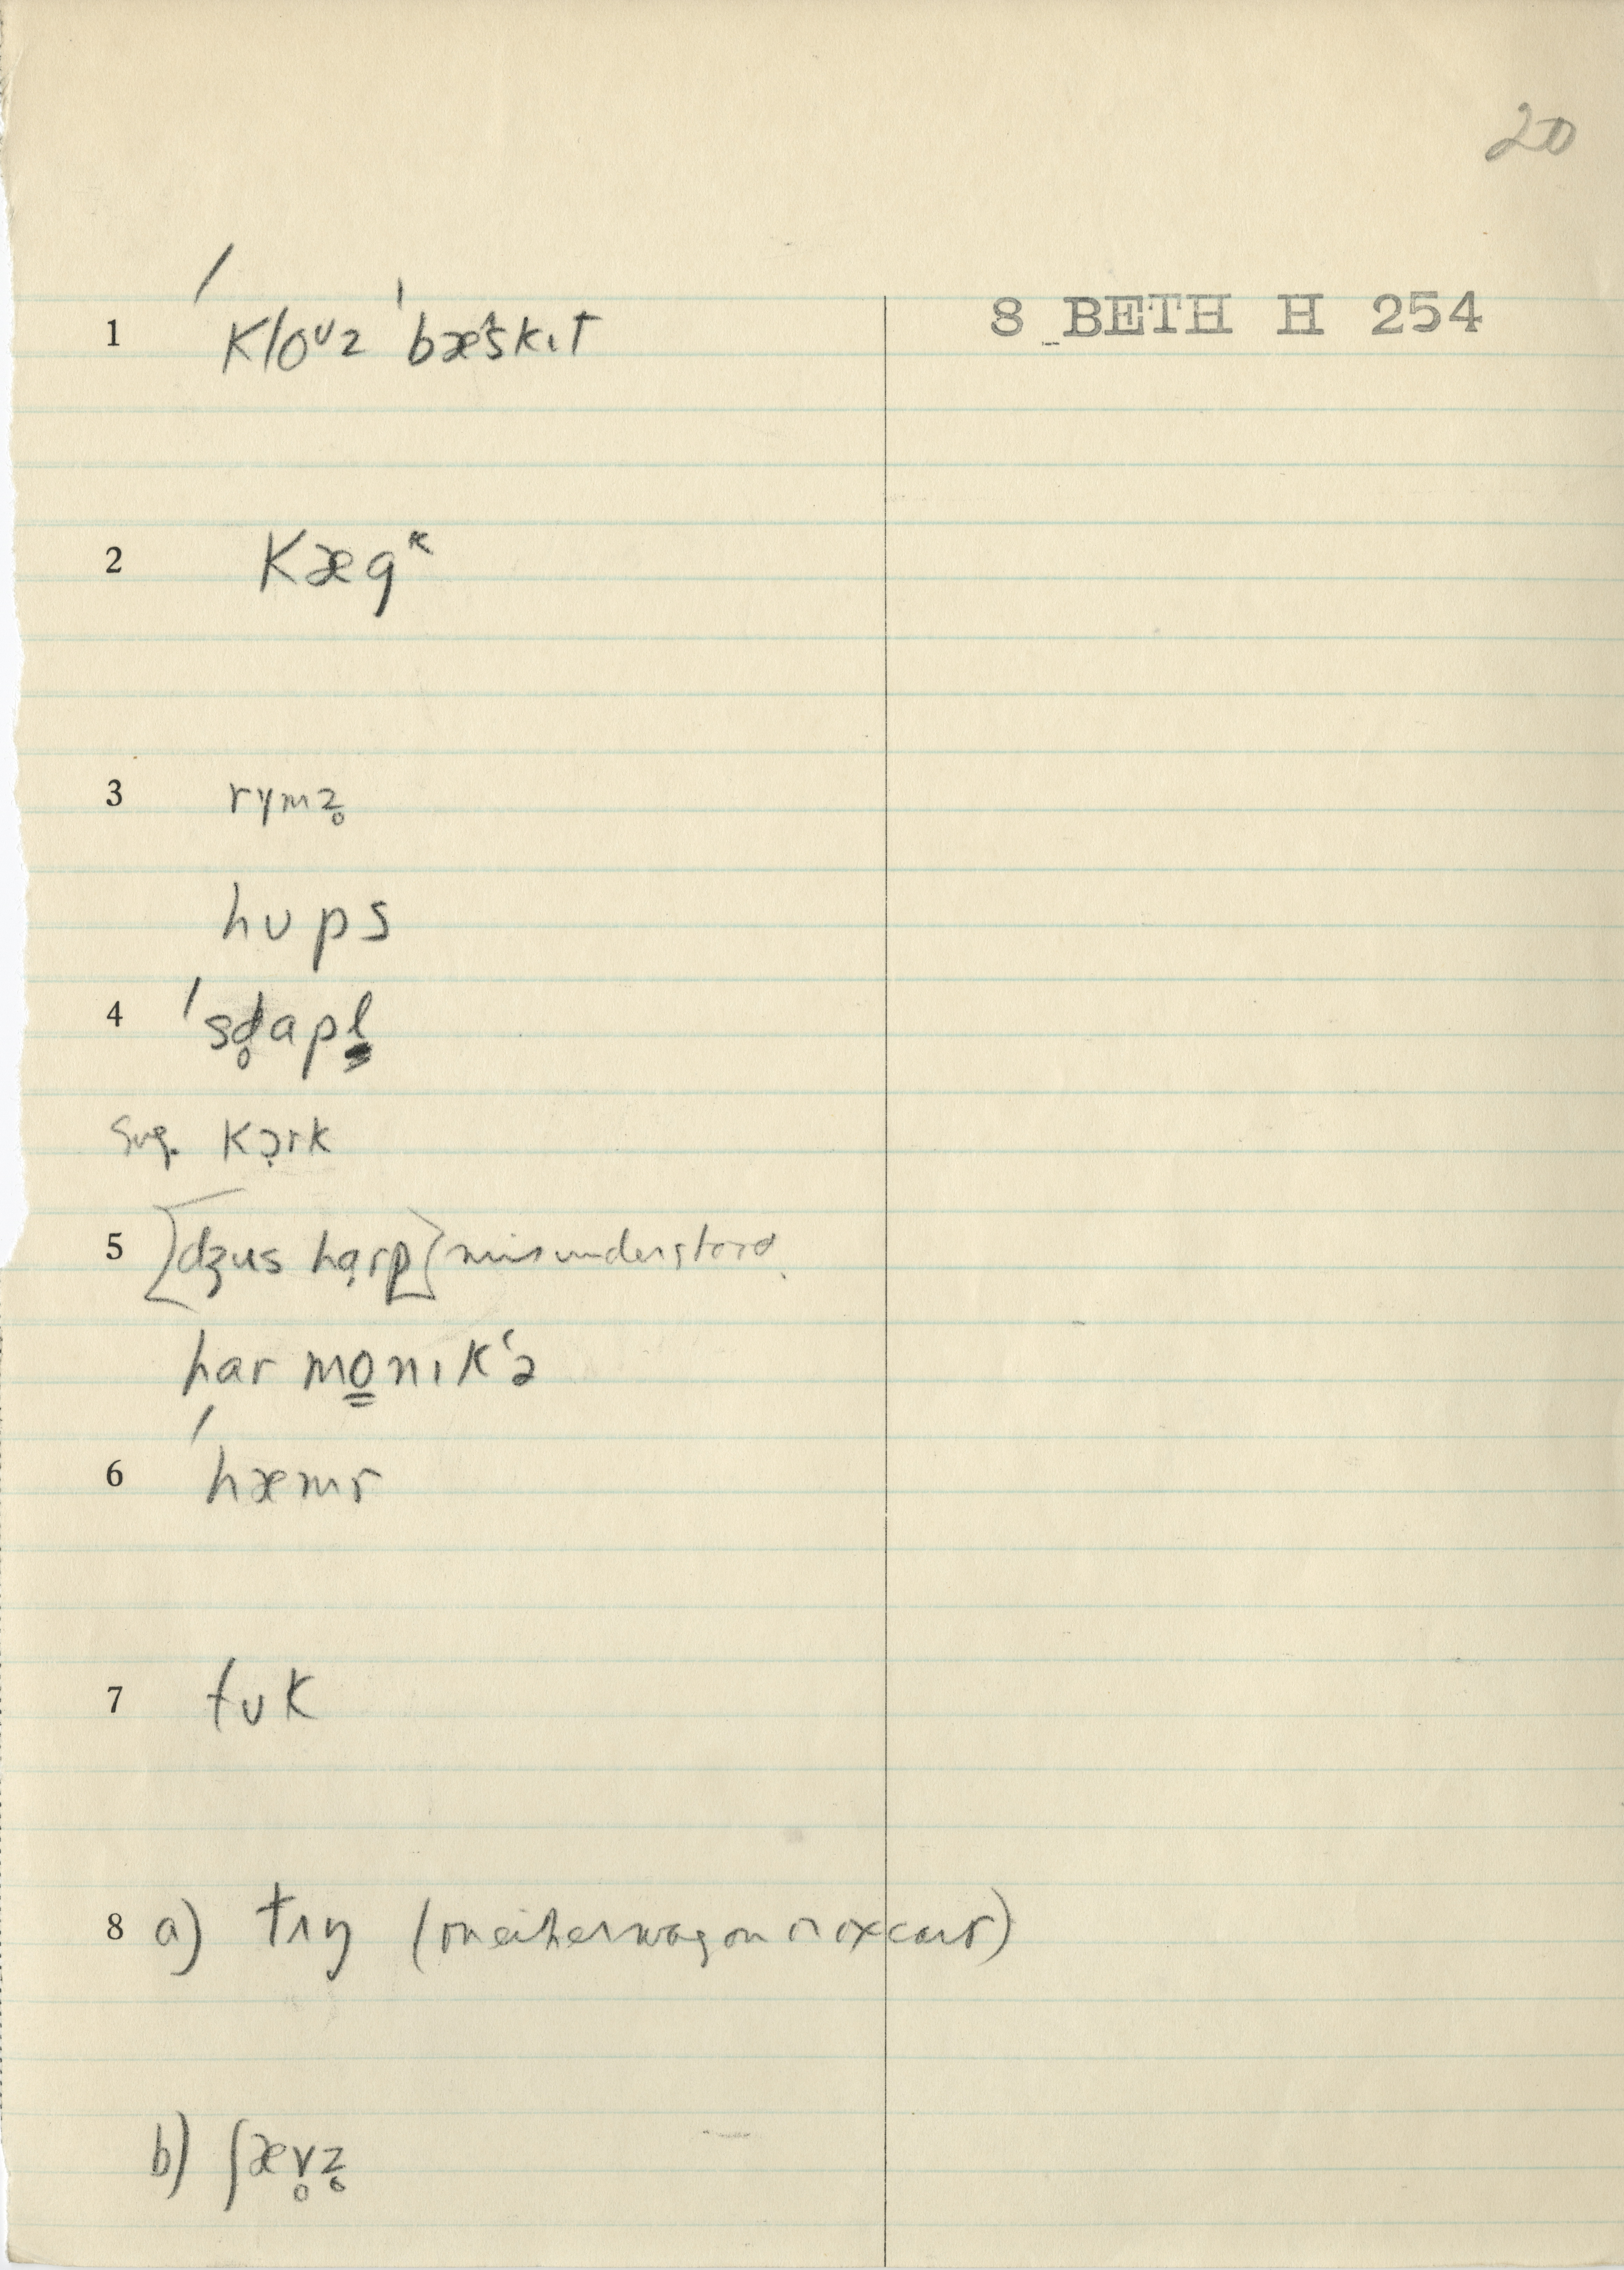 20
8 BETH H 254
1 ˈkloᶷz ˈbæˆskɪt
2 kægᵏ
3 rɣmz̥
hʊps
4 ˈsd̥apl̳
Sug. kɔ̣rk
5 [dʒus hɑ̣rp] misunderstood.
har mo̳nɪkʻə
6 ˈhæmr
7 tʊk
8 a) tʌŋ (on either wagon or oxcart)
b) ʃæv̥z̥